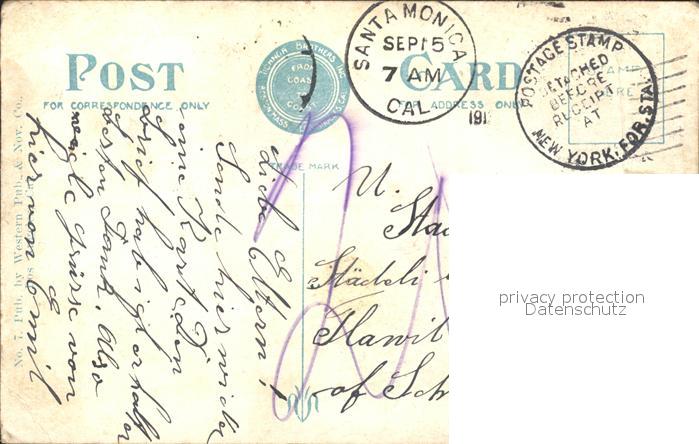 POST CARD
FOR CORRESPONDENCE ONLY
FOR ADDRESS ONLY
TICHNOR BROTHERS INC.
FROM
COAST
TO
COAST
TRADE MARK
SANTA MONICA
SEP 15
7 AM
CAL
191
POSTAGE STAMP
DETACHED
BEFORE
RECEIPT
AT
NEW YORK, FOR. STA.
STAMP
HERE
No. 7. Pub. by Western Pub. & Nov. Co.
Liebe Eltern!
Sende hier wieder
eine Karte. Den
Brief hab ich erhalten
besten Dank. Also
viele Grüsse von
hier von Emil
U.
Städeli
of
privacy protection
Datenschutz